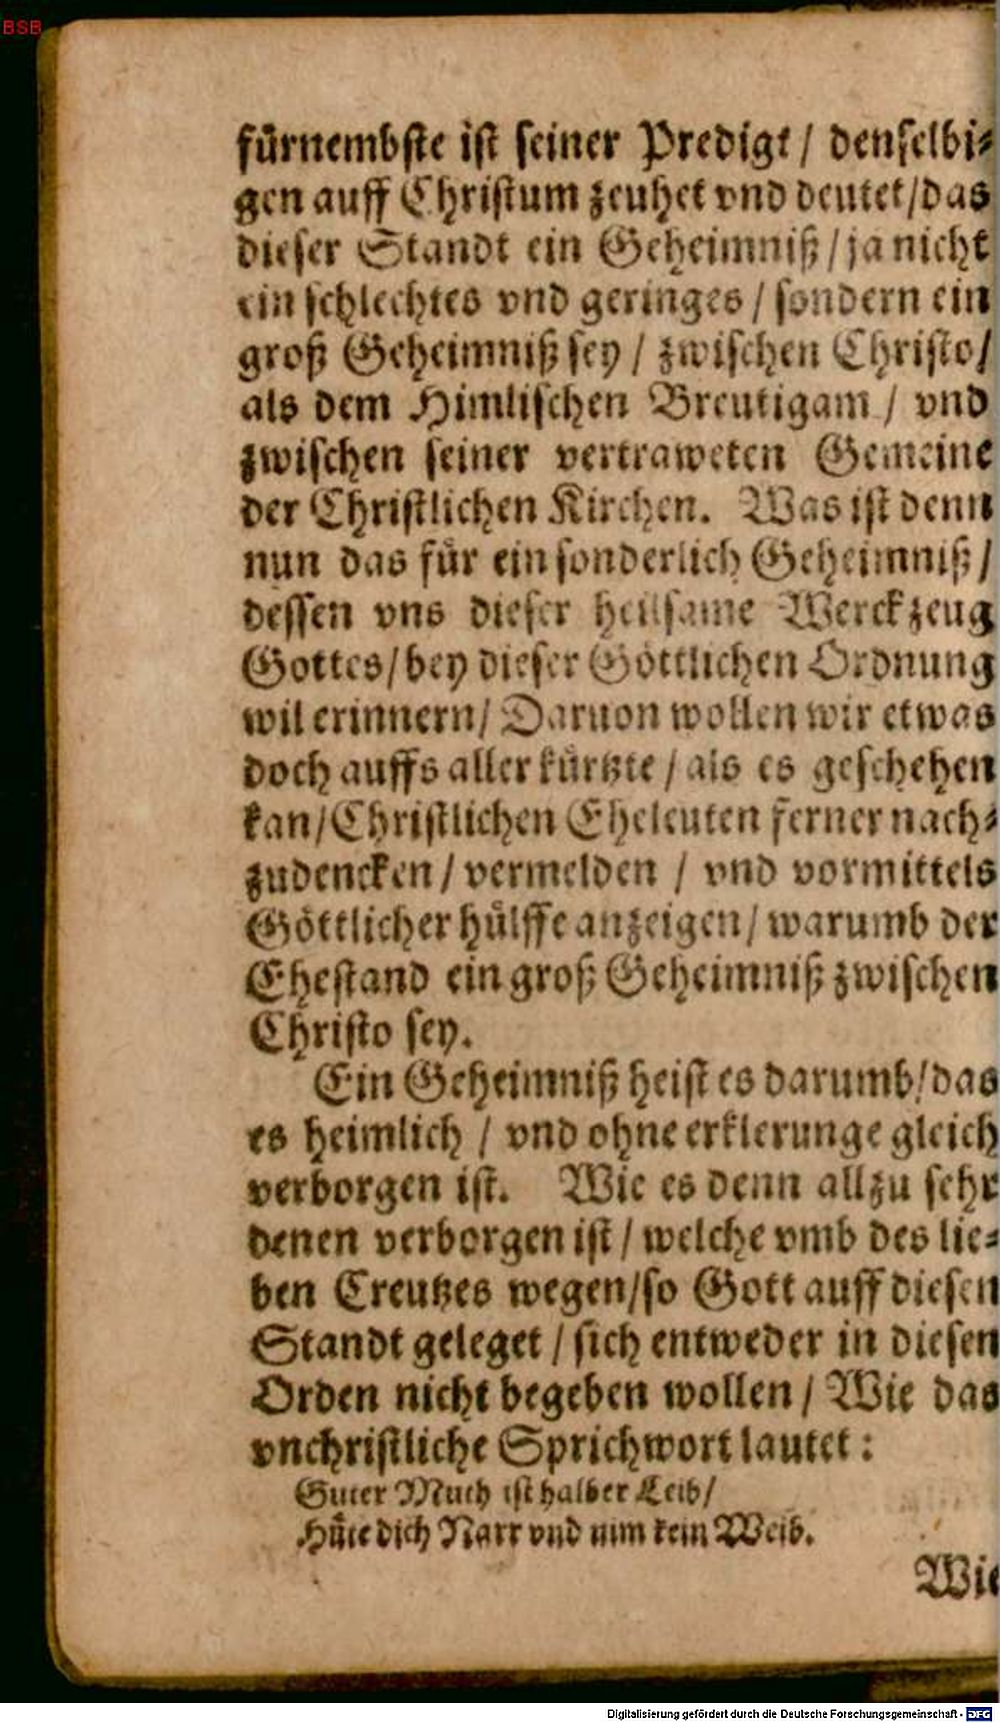 BSB
fürnembste ist seiner Predigt / denselbi-
gen auff Christum zeuhet vnd deutet / das
dieser Standt ein Geheimniß / ja nicht
ein schlechtes vnd geringes / sondern ein
groß Geheimniß sey / zwischen Christo /
als dem Himlischen Breutigam / vnd
zwischen seiner vertraweten Gemeine
der Christlichen Kirchen. Was ist denn
nun das für ein sonderlich Geheimniß /
dessen vns dieser heilsame Werckzeug
Gottes / bey dieser Göttlichen Ordnung
wil erinnern / Daruon wollen wir etwas
doch auffs aller kürtzte / als es geschehen
kan / Christlichen Eheleuten ferner nach-
zudencken / vermelden / vnd vormittels
Göttlicher hülffe anzeigen / warumb der
Ehestand ein groß Geheimniß zwischen
Christo sey.
Ein Geheimniß heist es darumb / das
es heimlich / vnd ohne erklerunge gleich
verborgen ist. Wie es denn allzu sehr
denen verborgen ist / welche vmb des lie-
ben Creutzes wegen / so Gott auff diesen
Standt geleget / sich entweder in diesen
Orden nicht begeben wollen / Wie das
vnchristliche Sprichwort lautet :
Guter Muth ist halber Leib /
Hüte dich Narr vnd nim kein Weib.
Wie
Digitalisierung gefördert durch die Deutsche Forschungsgemeinschaft - DFG